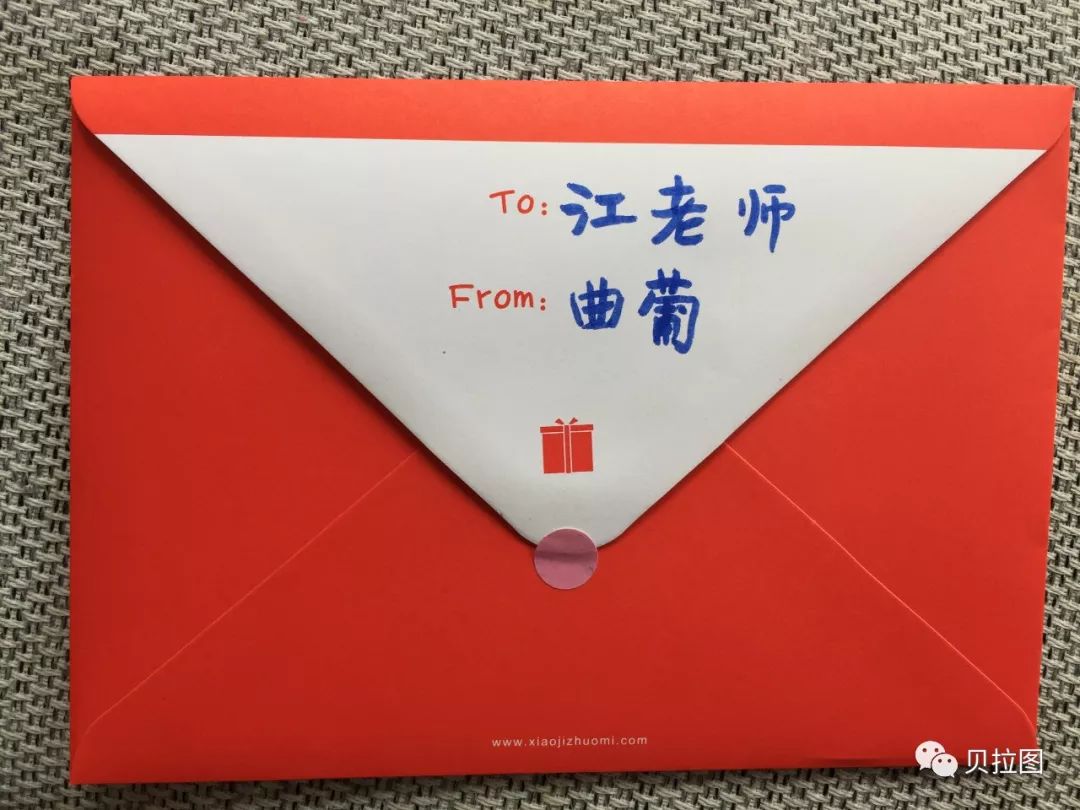 To: 江老师
From: 曲葡
www.xiaojizhuomi.com
贝拉图